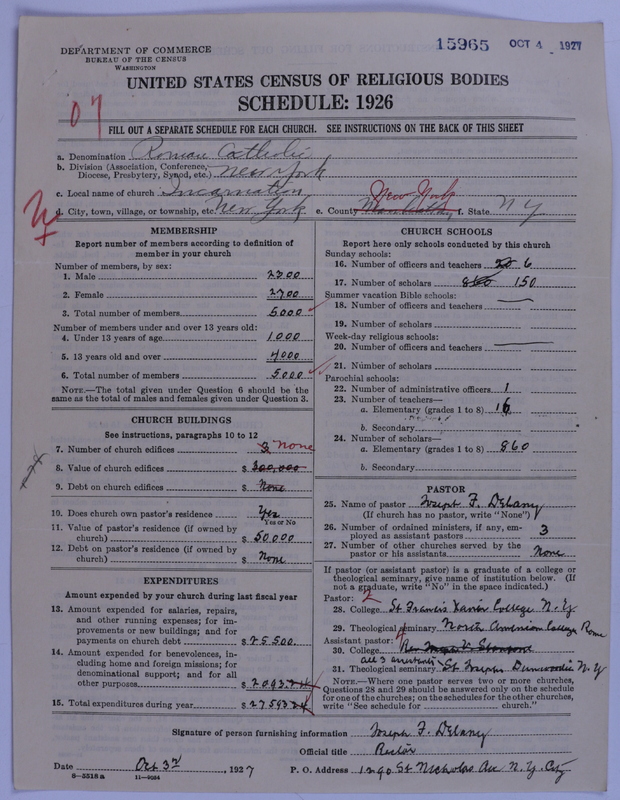 15965 OCT 4 1927
DEPARTMENT OF COMMERCE
BUREAU OF THE CENSUS
WASHINGTON
UNITED STATES CENSUS OF RELIGIOUS BODIES
SCHEDULE: 1926
07
FILL OUT A SEPARATE SCHEDULE FOR EACH CHURCH. SEE INSTRUCTIONS ON THE BACK OF THIS SHEET
a. Denomination Roman Catholic
b. Division (Association, Conference, Diocese, Presbytery, Synod, etc.) New York
c. Local name of church Incarnation
New York
d. City, town, village, or township, etc. New York e. County f. State N Y
MEMBERSHIP
Report number of members according to definition of
member in your church
Number of members, by sex:
1. Male 2300
2. Female 2700
3. Total number of members 5000
Number of members under and over 13 years old:
4. Under 13 years of age 1000
5. 13 years old and over 4000
6. Total number of members 5000
NOTE.—The total given under Question 6 should be the
same as the total of males and females given under Question 3.
CHURCH BUILDINGS
See instructions, paragraphs 10 to 12
7. Number of church edifices none
8. Value of church edifices $ 300,000
9. Debt on church edifices $ None
10. Does church own pastor's residence Yes
Yes or No
11. Value of pastor's residence (if owned by
church) $ 50,000
12. Debt on pastor's residence (if owned by
church) $ None
EXPENDITURES
Amount expended by your church during last fiscal year
13. Amount expended for salaries, repairs,
and other running expenses; for im-
provements or new buildings; and for
payments on church debt $ 25500.
14. Amount expended for benevolences, in-
cluding home and foreign missions; for
denominational support; and for all
other purposes $ 2093.24
15. Total expenditures during year $ 27593.24
CHURCH SCHOOLS
Report here only schools conducted by this church
Sunday schools:
16. Number of officers and teachers 6
17. Number of scholars 860 150
Summer vacation Bible schools:
18. Number of officers and teachers
19. Number of scholars
Week-day religious schools:
20. Number of officers and teachers
21. Number of scholars
Parochial schools:
22. Number of administrative officers 1
23. Number of teachers—
a. Elementary (grades 1 to 8) 16
b. Secondary
24. Number of scholars—
a. Elementary (grades 1 to 8) 860
b. Secondary
PASTOR
25. Name of pastor Joseph F. Delany
(If church has no pastor, write "None")
26. Number of ordained ministers, if any, em-
ployed as assistant pastors 3
27. Number of other churches served by the
pastor or his assistants None
If pastor (or assistant pastor) is a graduate of a college or
theological seminary, give name of institution below. (If
not a graduate, write "No" in the space indicated.)
Pastor: 2
28. College St Francis Xavier College N. Y
29. Theological seminary North American College Rome
Assistant pastor: 4
30. College
31. Theological seminary St Joseph Dunwoodie N. Y
NOTE.—Where one pastor serves two or more churches,
Questions 28 and 29 should be answered only on the schedule
for one of the churches; on the schedules for the other churches,
write "See schedule for church."
Signature of person furnishing information Joseph F. Delany
Official title Rector
Date Oct 3d, 1927 P. O. Address 1290 St Nicholas Ave N. Y. City
8-5518 a 11-9084